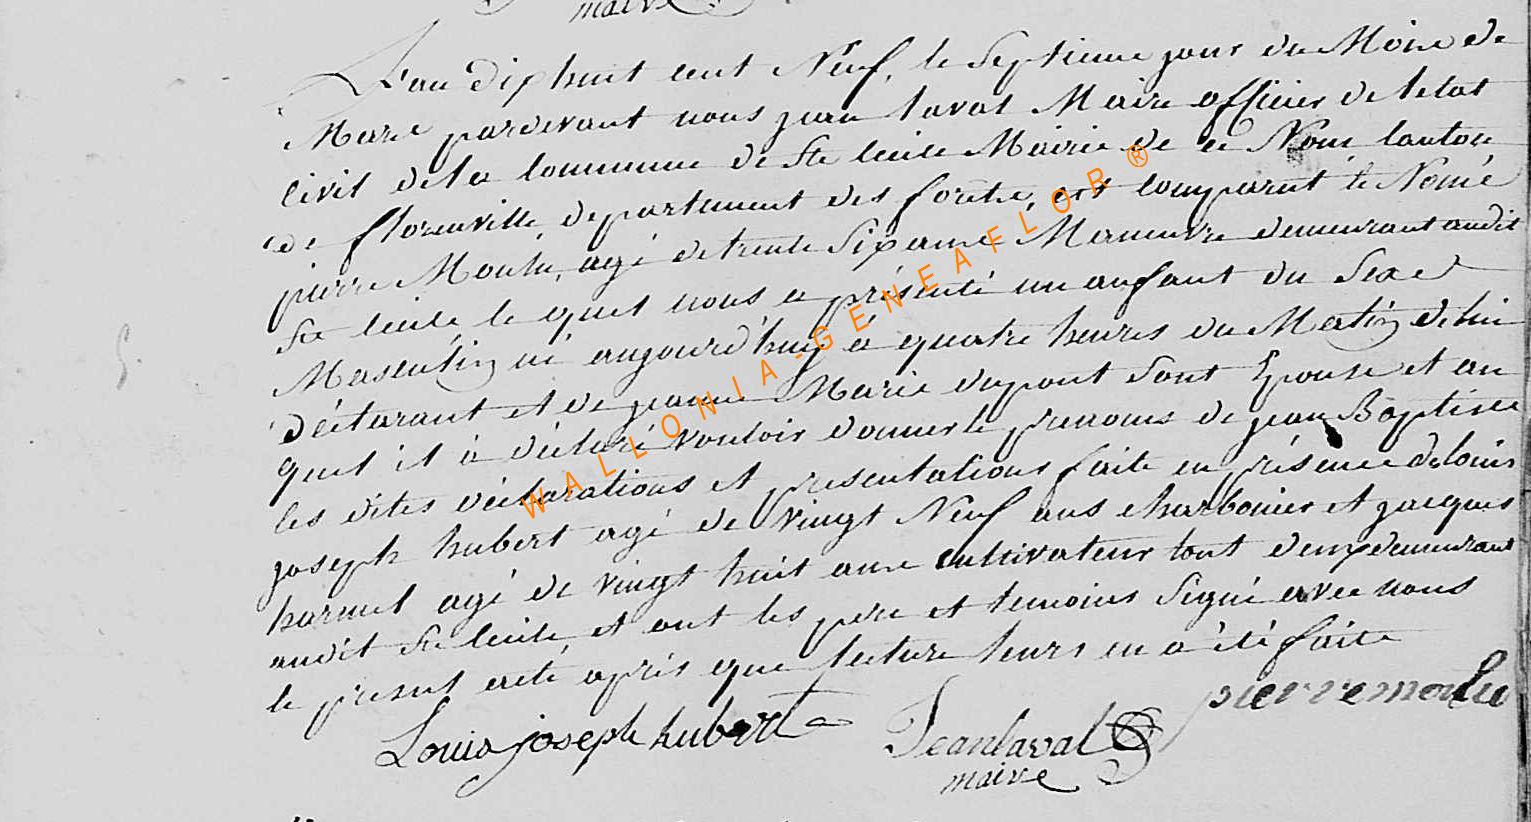 maire
L'an dix huit cent Neuf, le Septieme jour du Mois de
Mars pardevant nous jean laval Maire officier de letat
Civil dela Commune de Ste Cecile Mairie de ce Nom Canton
de florenville, departement des forêts, est comparut le Nomé
pierre Moulu, agé de trente Six ans Maneuvre demeurant audit
Ste Cecile, le quel nous a présenté un anfant du Sexe
Masculin né aujourd'huy à quatre heures du Matin de lui
déclarant et de jeanne Marie dupont Sont Epouse et au
quel il à déclaré vouloir donner le prenoms de jean Baptiste
les dites déclarations et presentations faite en présence de louis
joseph hubert agé de vingt Neuf ans charbonier et jacques
harmel agé de vingt huit ans cultivateur tout deux demeurant
audit Ste Cecile, et ont les pere et temoins Signé avec nous
le present acte après que lecture leurs en a été faite
pierre moulu
Louis joseph hubert
Jean laval
maire
WALLONIA-GENEAFLOR ®